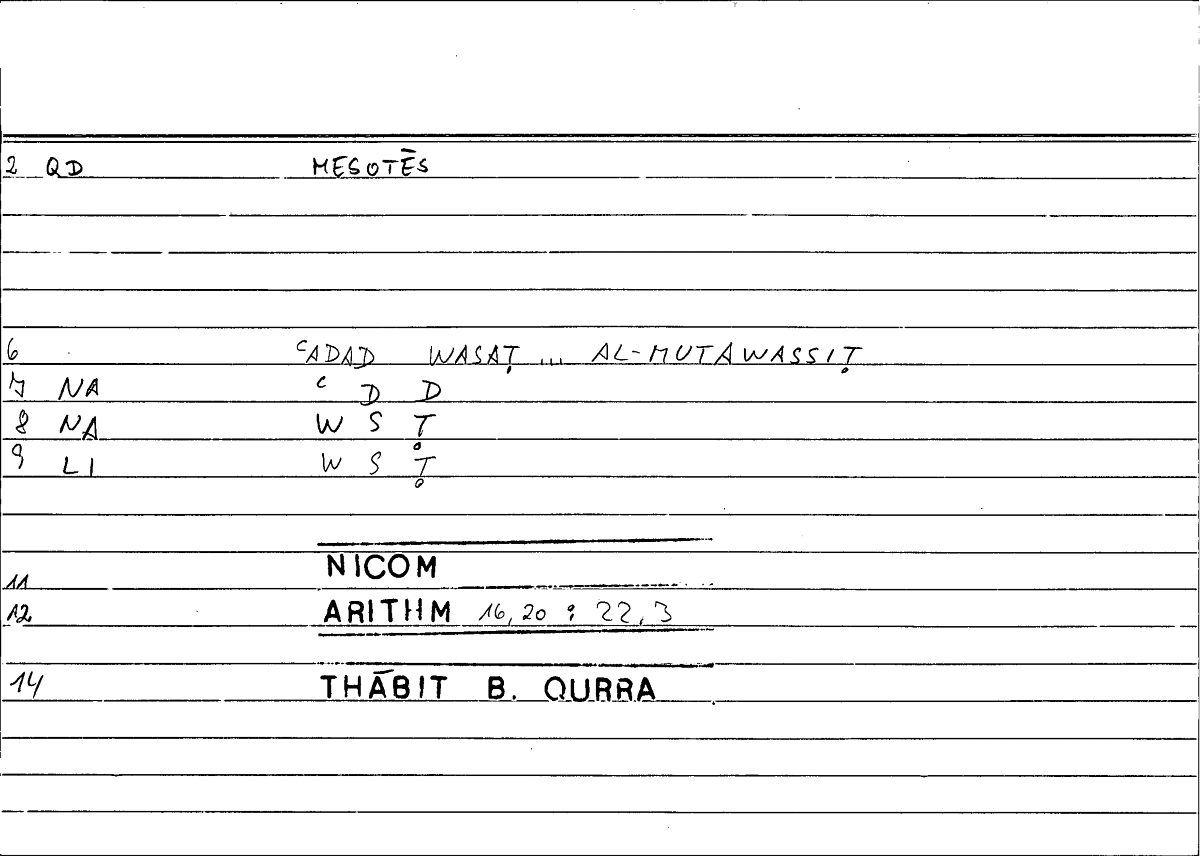 2 QD MESOTĒS
6 ʿADAD WASAṬ ... AL-MUTAWASSIṬ
7 NA ʿ D D
8 NA W S Ṭ
9 LI W S Ṭ
NICOM
11
12 ARITHM 16,20 : 22,3
14 THĀBIT B. QURRA